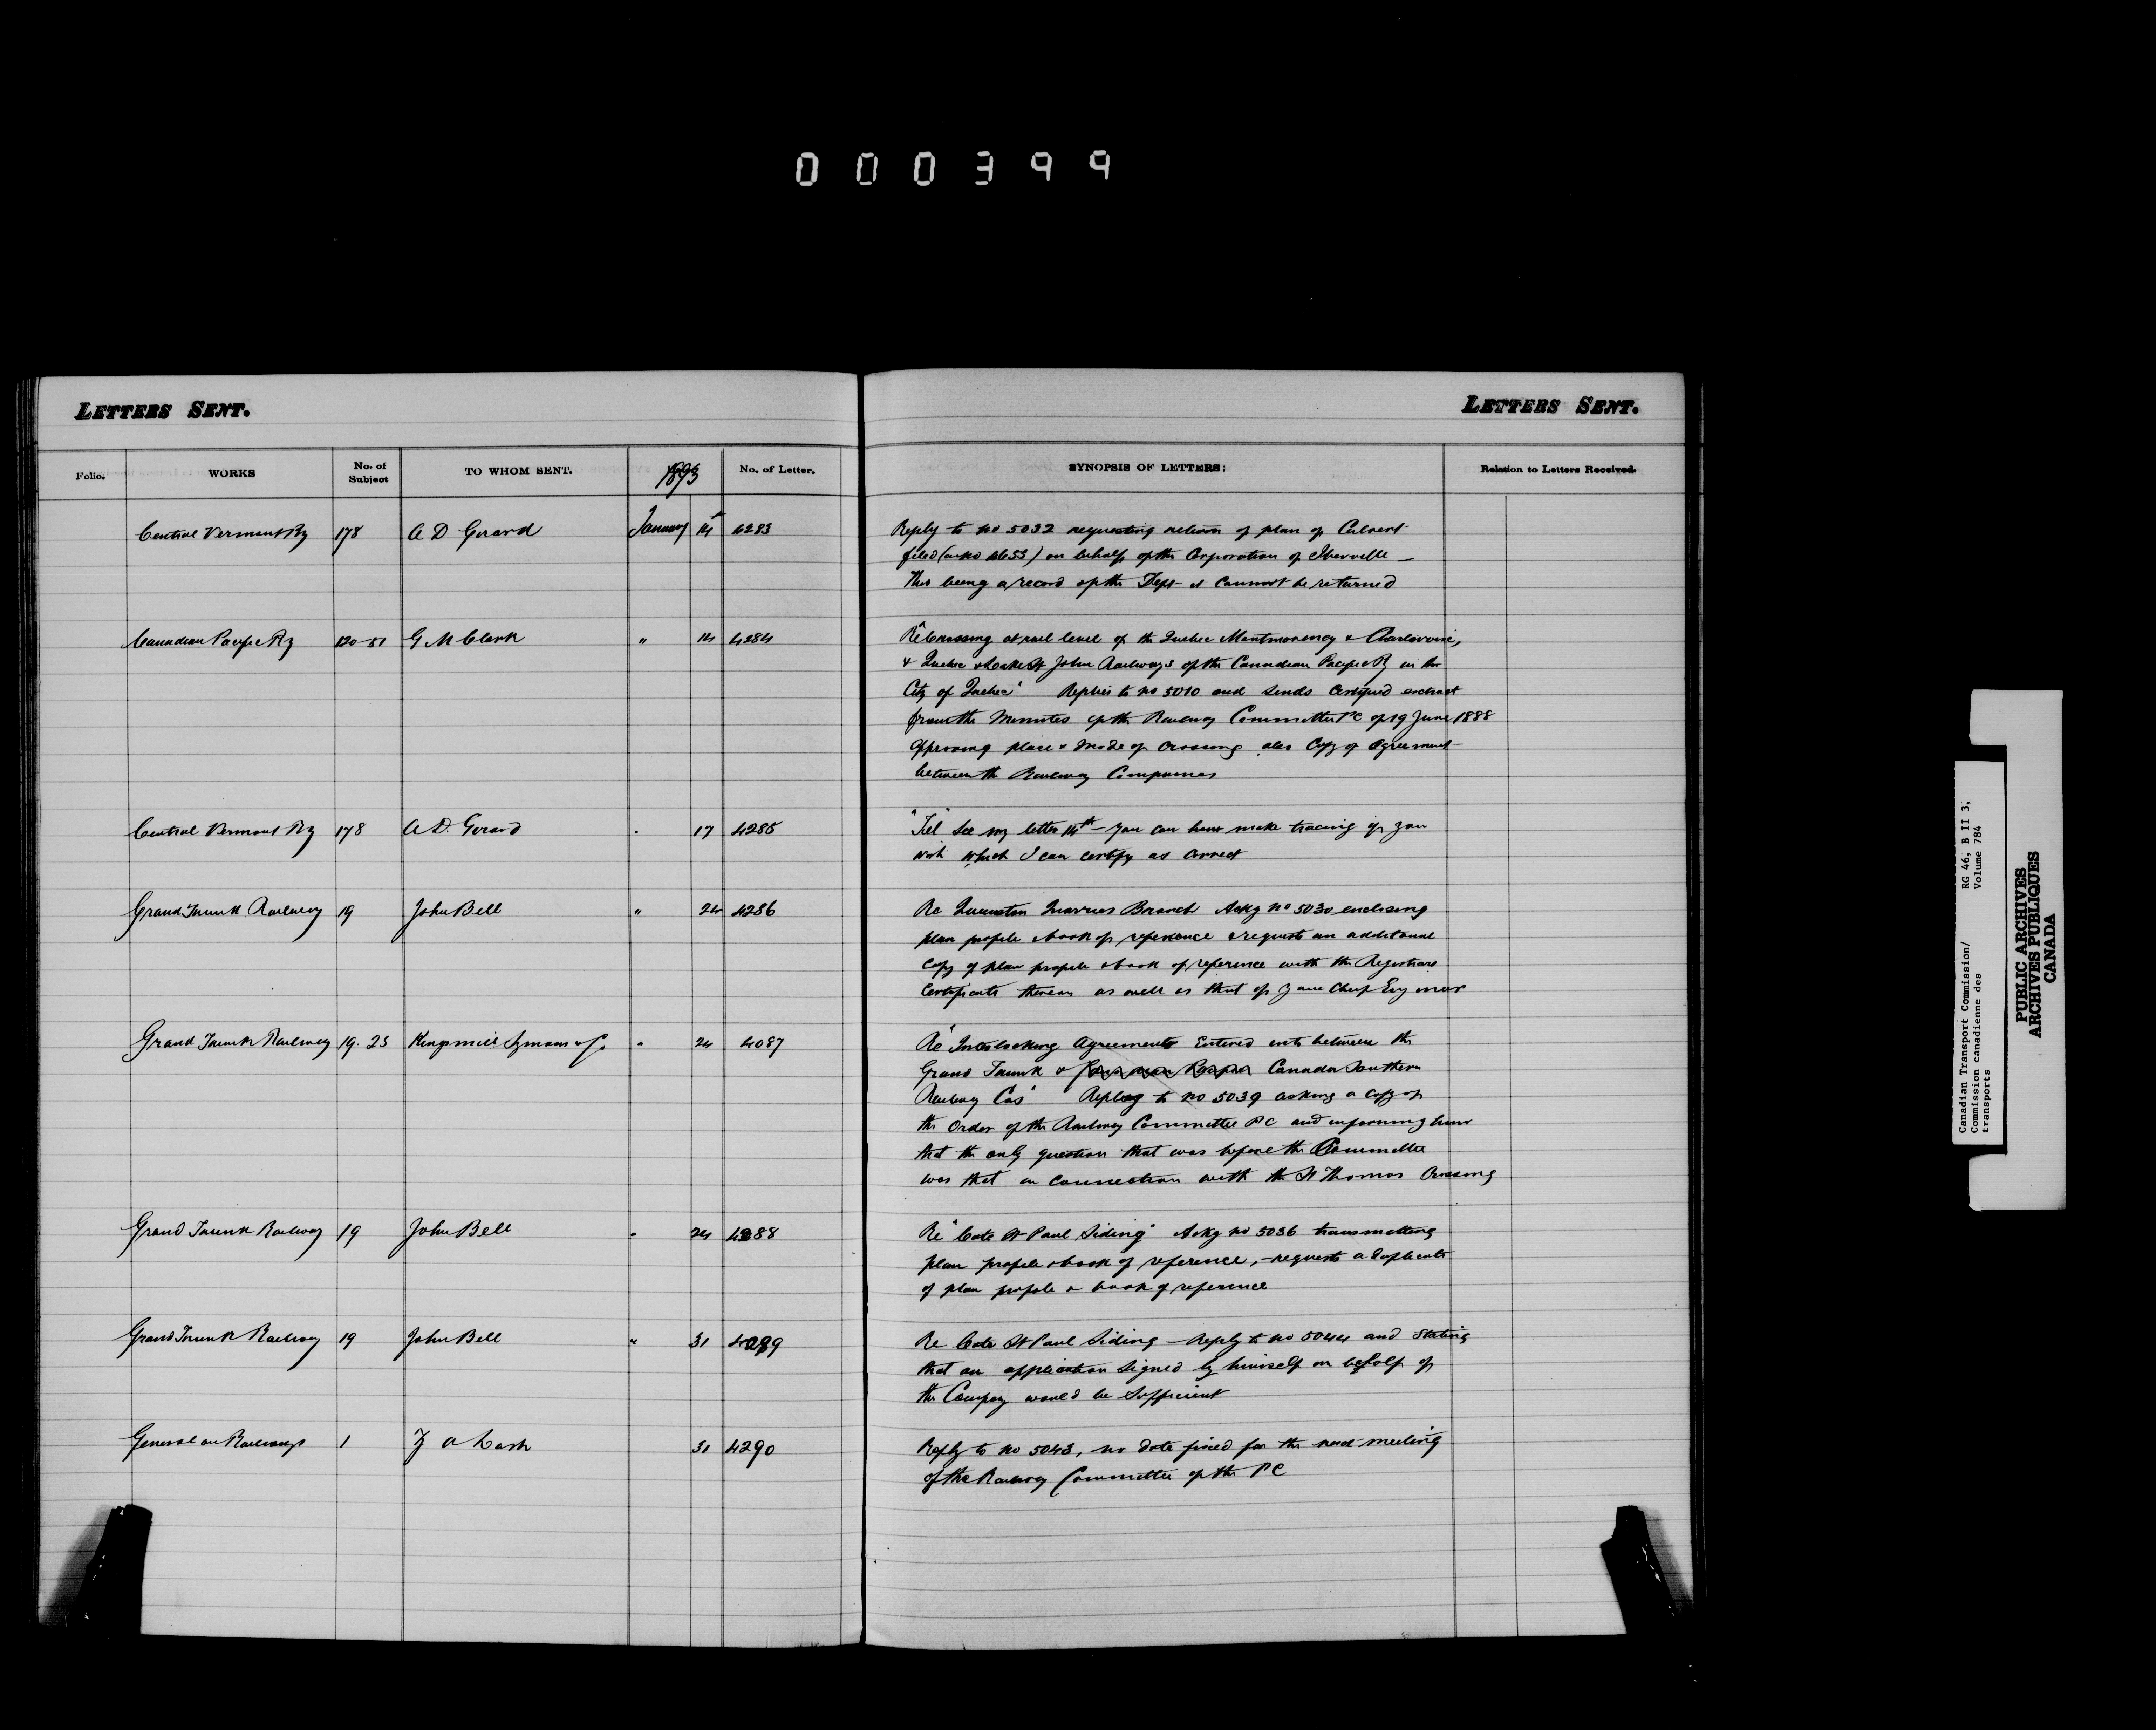 000399
LETTERS SENT.
LETTERS SENT.
Folio. WORKS No. of Subject TO WHOM SENT. 1893 No. of Letter. SYNOPSIS OF LETTERS: Relation to Letters Received.
Central Vermont Ry 178 A D Girard January 14 4283 Reply to no 5032 requesting return of plan of Culvert
filed (as no 4653) on behalf of the Corporation of Iberville —
This being a record of the Dept it cannot be returned
Canadian Pacific Ry 120-51 G M Clark " 14 4284 Re "Crossing at rail level of the Quebec Montmorency & Charlevoix,
& Quebec & Lake St John Railways of the Canadian Pacific Ry in the
City of Quebec" Replies to no 5010 and sends Certified extract
from the Minutes of the Railway Committee PC of 19 June 1888
approving place & mode of crossing also Copy of agreement
between the Railway Companies
Central Vermont Ry 178 A D. Girard " 17 4285 "Tel" See my letter 14th — you can have make tracing if you
wish which I can certify as correct
Grand Trunk Railway 19 John Bell " 24 4286 Re Queenston Quarries Branch Ackg no 5030 enclosing
plan profile & book of reference & requests an additional
copy of plan profile & book of reference with the Registrars
Certificate thereon as well as that of your Chief Engineer
Grand Trunk Railway 19. 23 Kingsmill Symons & Co " 24 4087 Re "Interlocking agreements Entered into between the
Grand Trunk & Canada Southern
Railway Cos" Replies to no 5039 asking a copy of
the Order of the Railway Committee PC and informing him
that the only question that was before the Committee
was that in connection with the St Thomas Crossing
Grand Trunk Railway 19 John Bell " 24 4288 Re "Cote St Paul Siding" Ackg no 5036 transmitting
plan profile & book of reference, — requests a duplicate
of plan profile & book of reference
Grand Trunk Railway 19 John Bell " 31 4289 Re Cote St Paul Siding — Reply to no 5044 and stating
that an application signed by himself on behalf of
the Company would be sufficient
General on Railways 1 Z A Lash 31 4290 Reply to no 5043, no date fixed for the next meeting
of the Railway Committee of the PC
Canadian Transport Commission/ RG 46, B II 3,
Commission canadienne des Volume 784
transports
PUBLIC ARCHIVES
ARCHIVES PUBLIQUES
CANADA